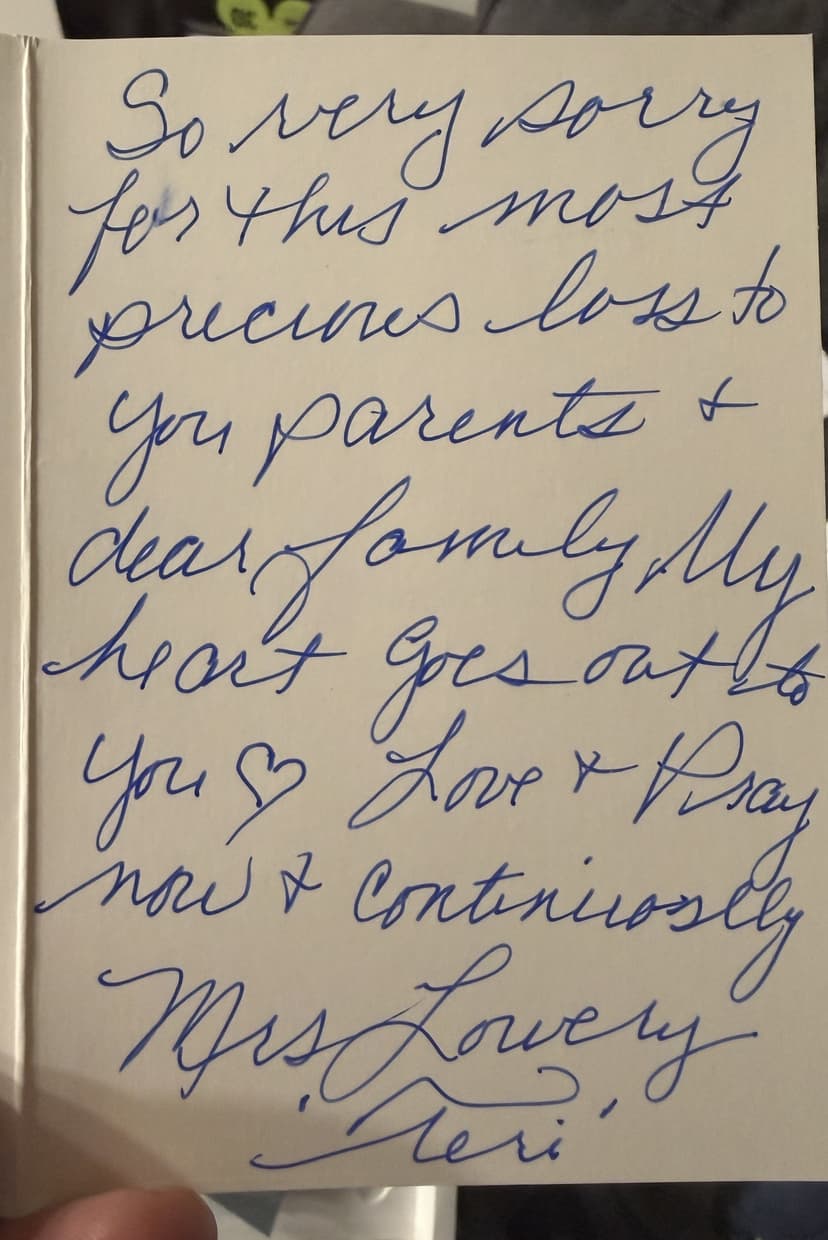 So very sorry
for this most
precious loss to
you parents +
dear family, My
heart goes out to
you ♡ Love + Pray
now + continuoslly
Mrs Lowery
'Teri'